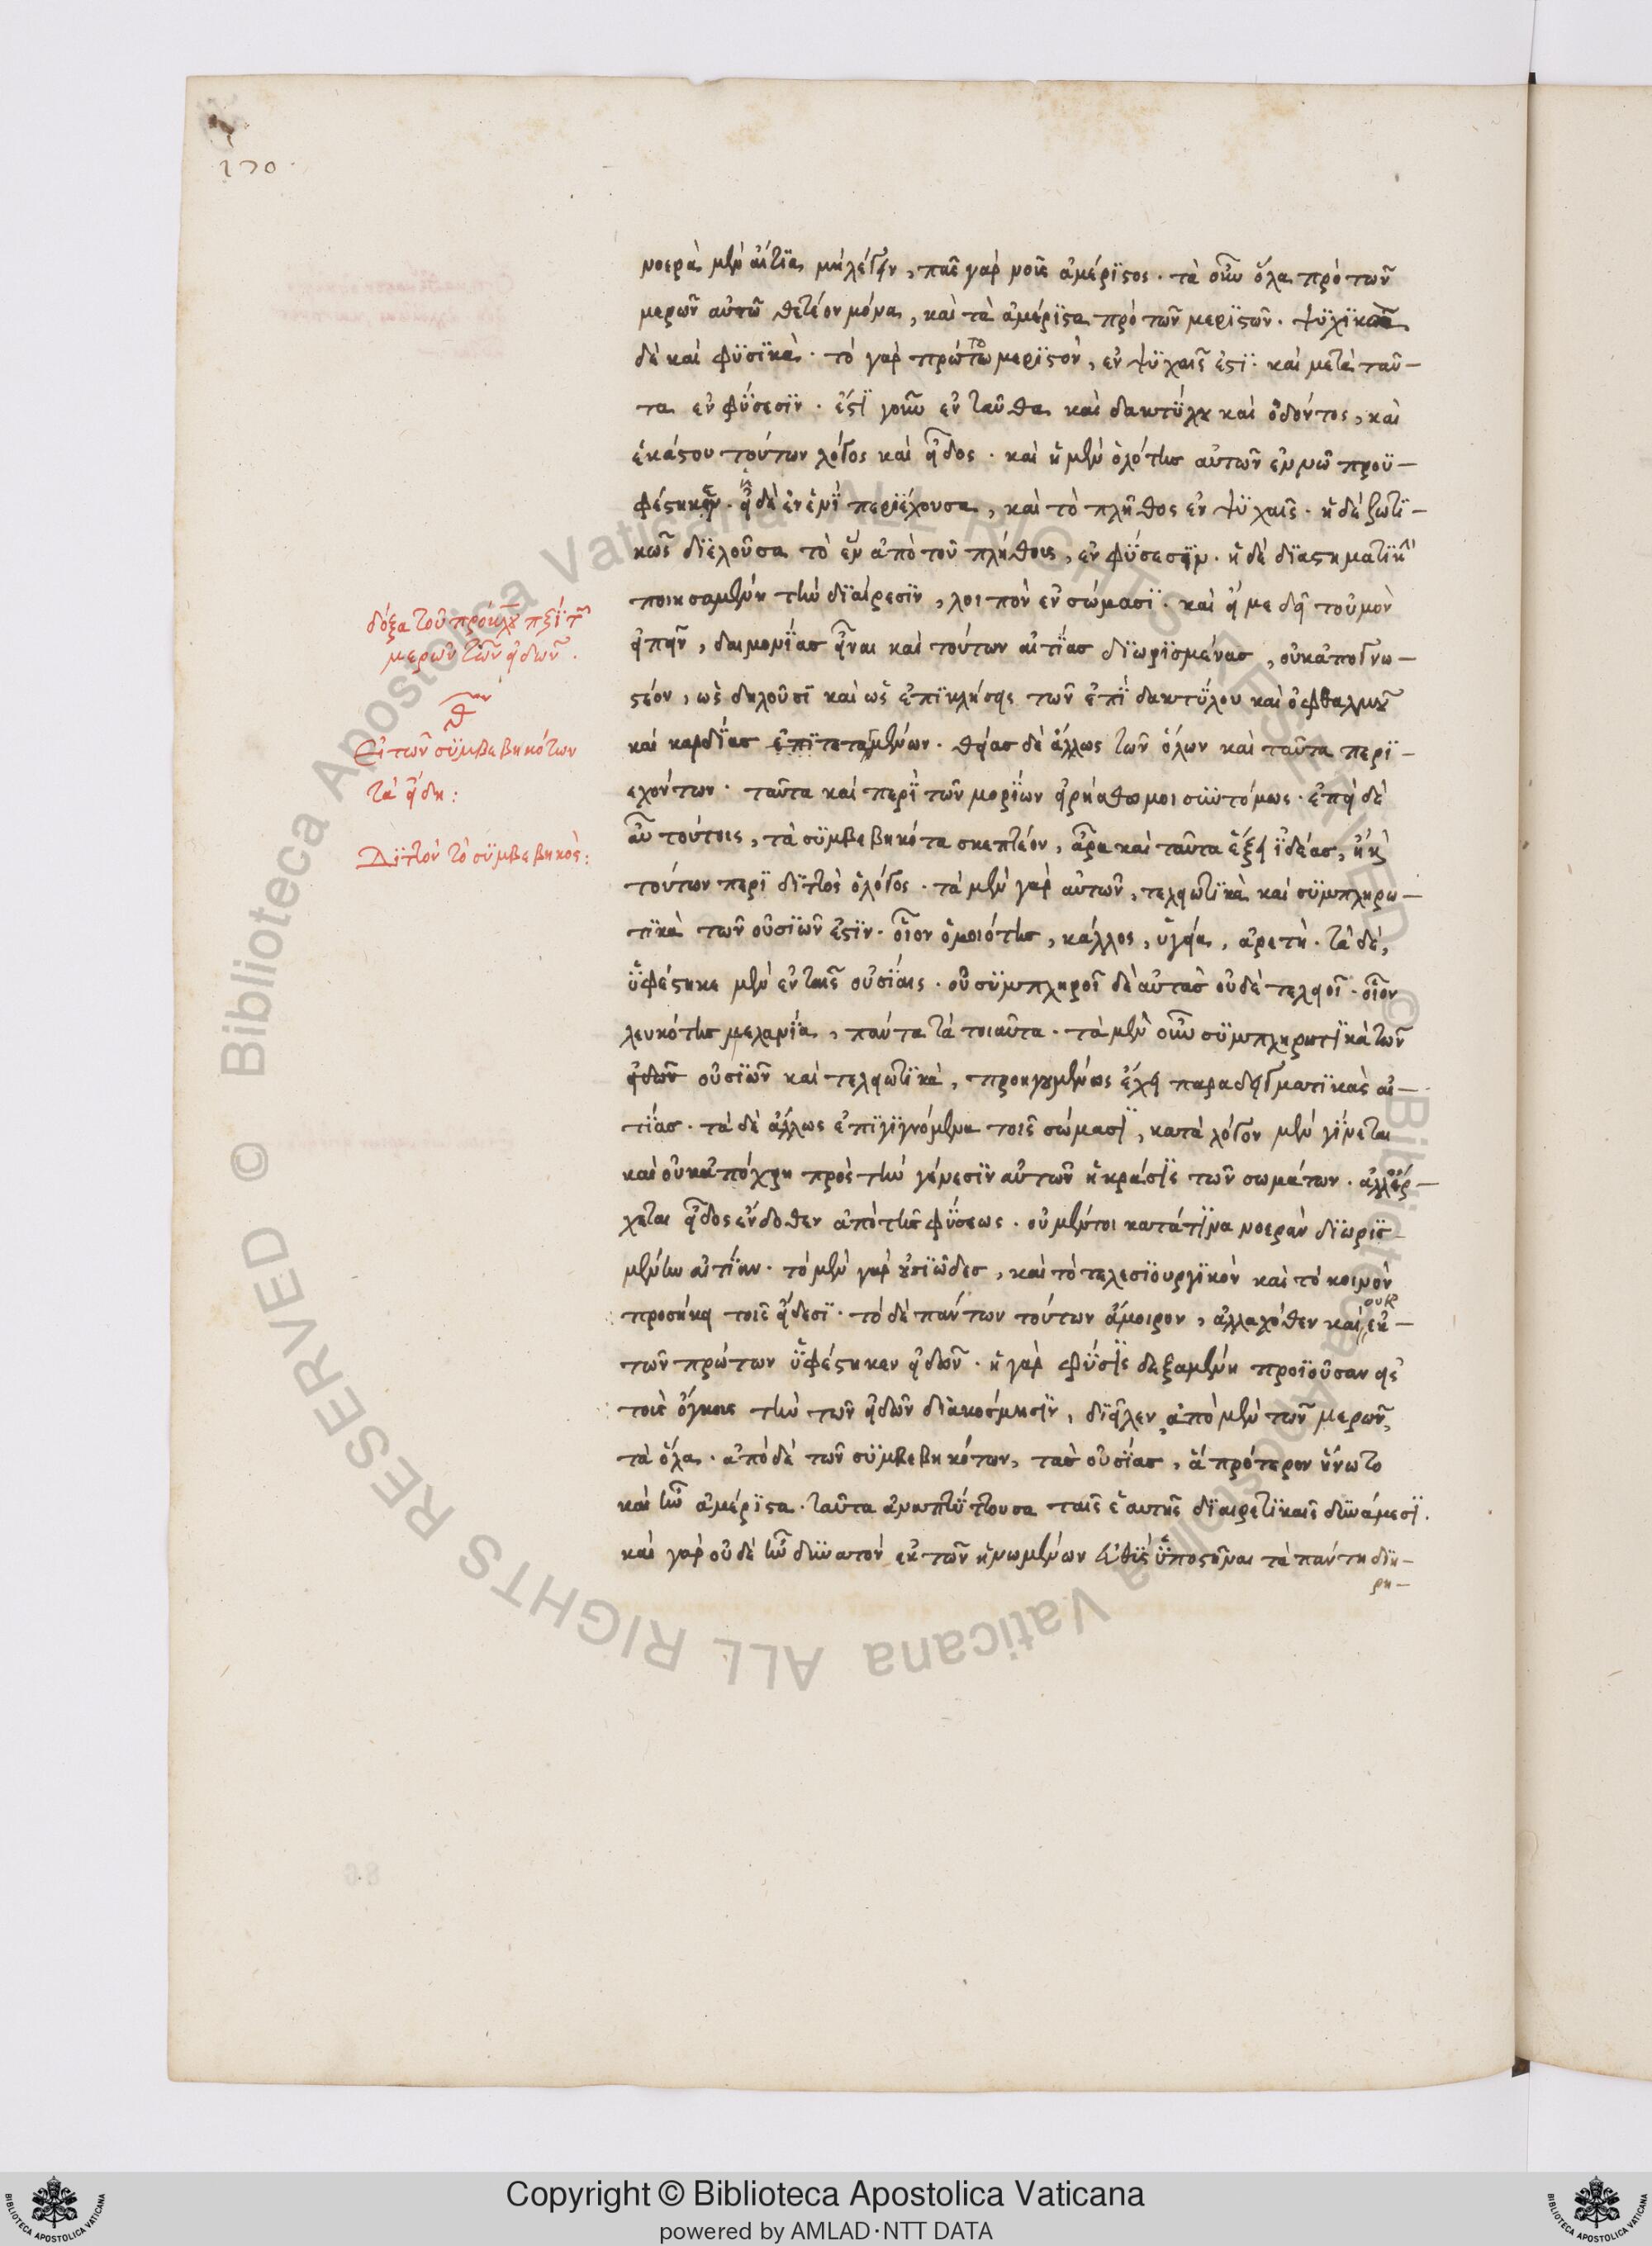 270.
νοερὰ μὲν αἴτια μὴ λέγειν, πᾶς γὰρ νοῦς ἀμέριστος. τὰ οὖν ὅλα πρὸ τῶν
μερῶν αὐτῶ θετέον μόνα, καὶ τὰ ἀμέριστα πρὸ τῶν μεριστῶν. ψυχικὰ
δὲ καὶ φυσικὰ. τὸ γὰρ πρώτως μεριστὸν, ἐν ψυχαῖς ἐστί. καὶ μετὰ ταῦ-
τα ἐν φύσεσιν. ἔστι γοῦν ἐνταῦθα καὶ δακτύλου καὶ ὀδόντος, καὶ
ἑκάστου τούτων λόγος καὶ εἶδος. καὶ ἡ μὲν ὁλότης αὐτῶν ἐν νῶ προϋ-
φέστηκεν. ἡ δὲ ἐν ἑνὶ περιέχουσα, καὶ τὸ πλῆθος ἐν ψυχαῖς. ἡ δὲ ζωτι-
κῶς διελοῦσα τὸ ἓν ἀπὸ τοῦ πλήθους, ἐν φύσεσιν. ἡ δὲ διαστηματικὴ
ποιησαμένη τὴν διαίρεσιν, λοιπὸν ἐν σώμασι. καὶ εἴ με δεῖ τοὐμὸν
εἰπεῖν, δαιμονίας εἶναι καὶ τούτων αἰτίας διωρισμένας, οὐκ ἀπογνω-
στέον, ὡς δηλοῦσι καὶ ὡς ἐπικλήσεις τῶν ἐπὶ δακτύλου καὶ ὀφθαλμοῦ
καὶ καρδίας ἐπιτεταγμένων. θείας δὲ ἄλλως τῶν ὅλων καὶ ταῦτα περι-
εχόντων. ταῦτα καὶ περὶ τῶν μορίων εἰρήσθω μοι συντόμως. ἐπεὶ δὲ
αὖ τούτοις, τὰ συμβεβηκότα σκεπτέον, ἆρα καὶ ταῦτα ἕξει ἰδέας, ἢ καὶ
τούτων περὶ διττὸς ὁ λόγος. τὰ μὲν γὰρ αὐτῶν, τελειωτικὰ καὶ συμπληρω-
τικὰ τῶν οὐσιῶν ἐστίν. οἷον ὁμοιότης, κάλλος, ὑγεία, ἀρετὴ. τὰ δὲ,
ὑφέστηκε μὲν ἐν ταῖς οὐσίαις. οὐ συμπληροῖ δὲ αὐτὰς οὐδὲ τελειοῖ. οἷον
λευκότης μελανία, πάντα τὰ τοιαῦτα. τὰ μὲν οὖν συμπληρωτικὰ τῶν
εἰδῶν οὐσιῶν καὶ τελειωτικὰ, προηγουμένως ἔχει παραδειγματικὰς αἰ-
τίας. τὰ δὲ ἄλλως ἐπιγιγνόμενα τοῖς σώμασι, κατὰ λόγον μὲν γίνεται
καὶ οὐκ ἀπόχρη πρὸς τὴν γένεσιν αὐτῶν ἡ κράσις τῶν σωμάτων. ἀλλ' ἔρ-
χεται εἶδος ἔνδοθεν ἀπὸ τῆς φύσεως. οὐ μέντοι κατά τινα νοερὰν διωρισ-
μένην αἰτίαν. τὸ μὲν γὰρ οὐσιῶδες, καὶ τὸ τελεσιουργικὸν καὶ τὸ κοινὸν
προσήκει τοῖς εἴδεσι. τὸ δὲ πάντων τούτων ἄμοιρον, ἀλλαχόθεν καὶ οὐκ ἐκ
τῶν πρώτων ὑφέστηκεν εἰδῶν. ἡ γὰρ φύσις δεξαμένη προϊοῦσαν εἰς
τοὺς ὄγκους τὴν τῶν εἰδῶν διακόσμησιν, διεῖλεν ἀπὸ μὲν τῶν μερῶν
τὰ ὅλα. ἀπὸ δὲ τῶν συμβεβηκότων, τὰς οὐσίας, ἃ πρότερον ἥνωτο
καὶ ἦν ἀμέριστα. ταῦτα ἀναπτύττουσα ταῖς ἑαυτῆς διαιρετικαῖς δυνάμεσι.
καὶ γὰρ οὐδὲ ἦν δυνατὸν ἐκ τῶν ἡνωμένων εὐθὺς ὑποστῆναι τὰ πάντη διῃ-
ρη-
δόξα τοῦ πρόκλου περὶ τῶν
μερῶν τῶν εἰδῶν.
θον
Εἰ τῶν συμβεβηκότων
τὰ εἴδη:
Διττὸν τὸ συμβεβηκὸς:
Copyright © Biblioteca Apostolica Vaticana
powered by AMLAD·NTT DATA
© Biblioteca Apostolica Vaticana ALL RIGHTS RESERVED
© Biblioteca Apostolica Vaticana ALL RIGHTS RESERVED